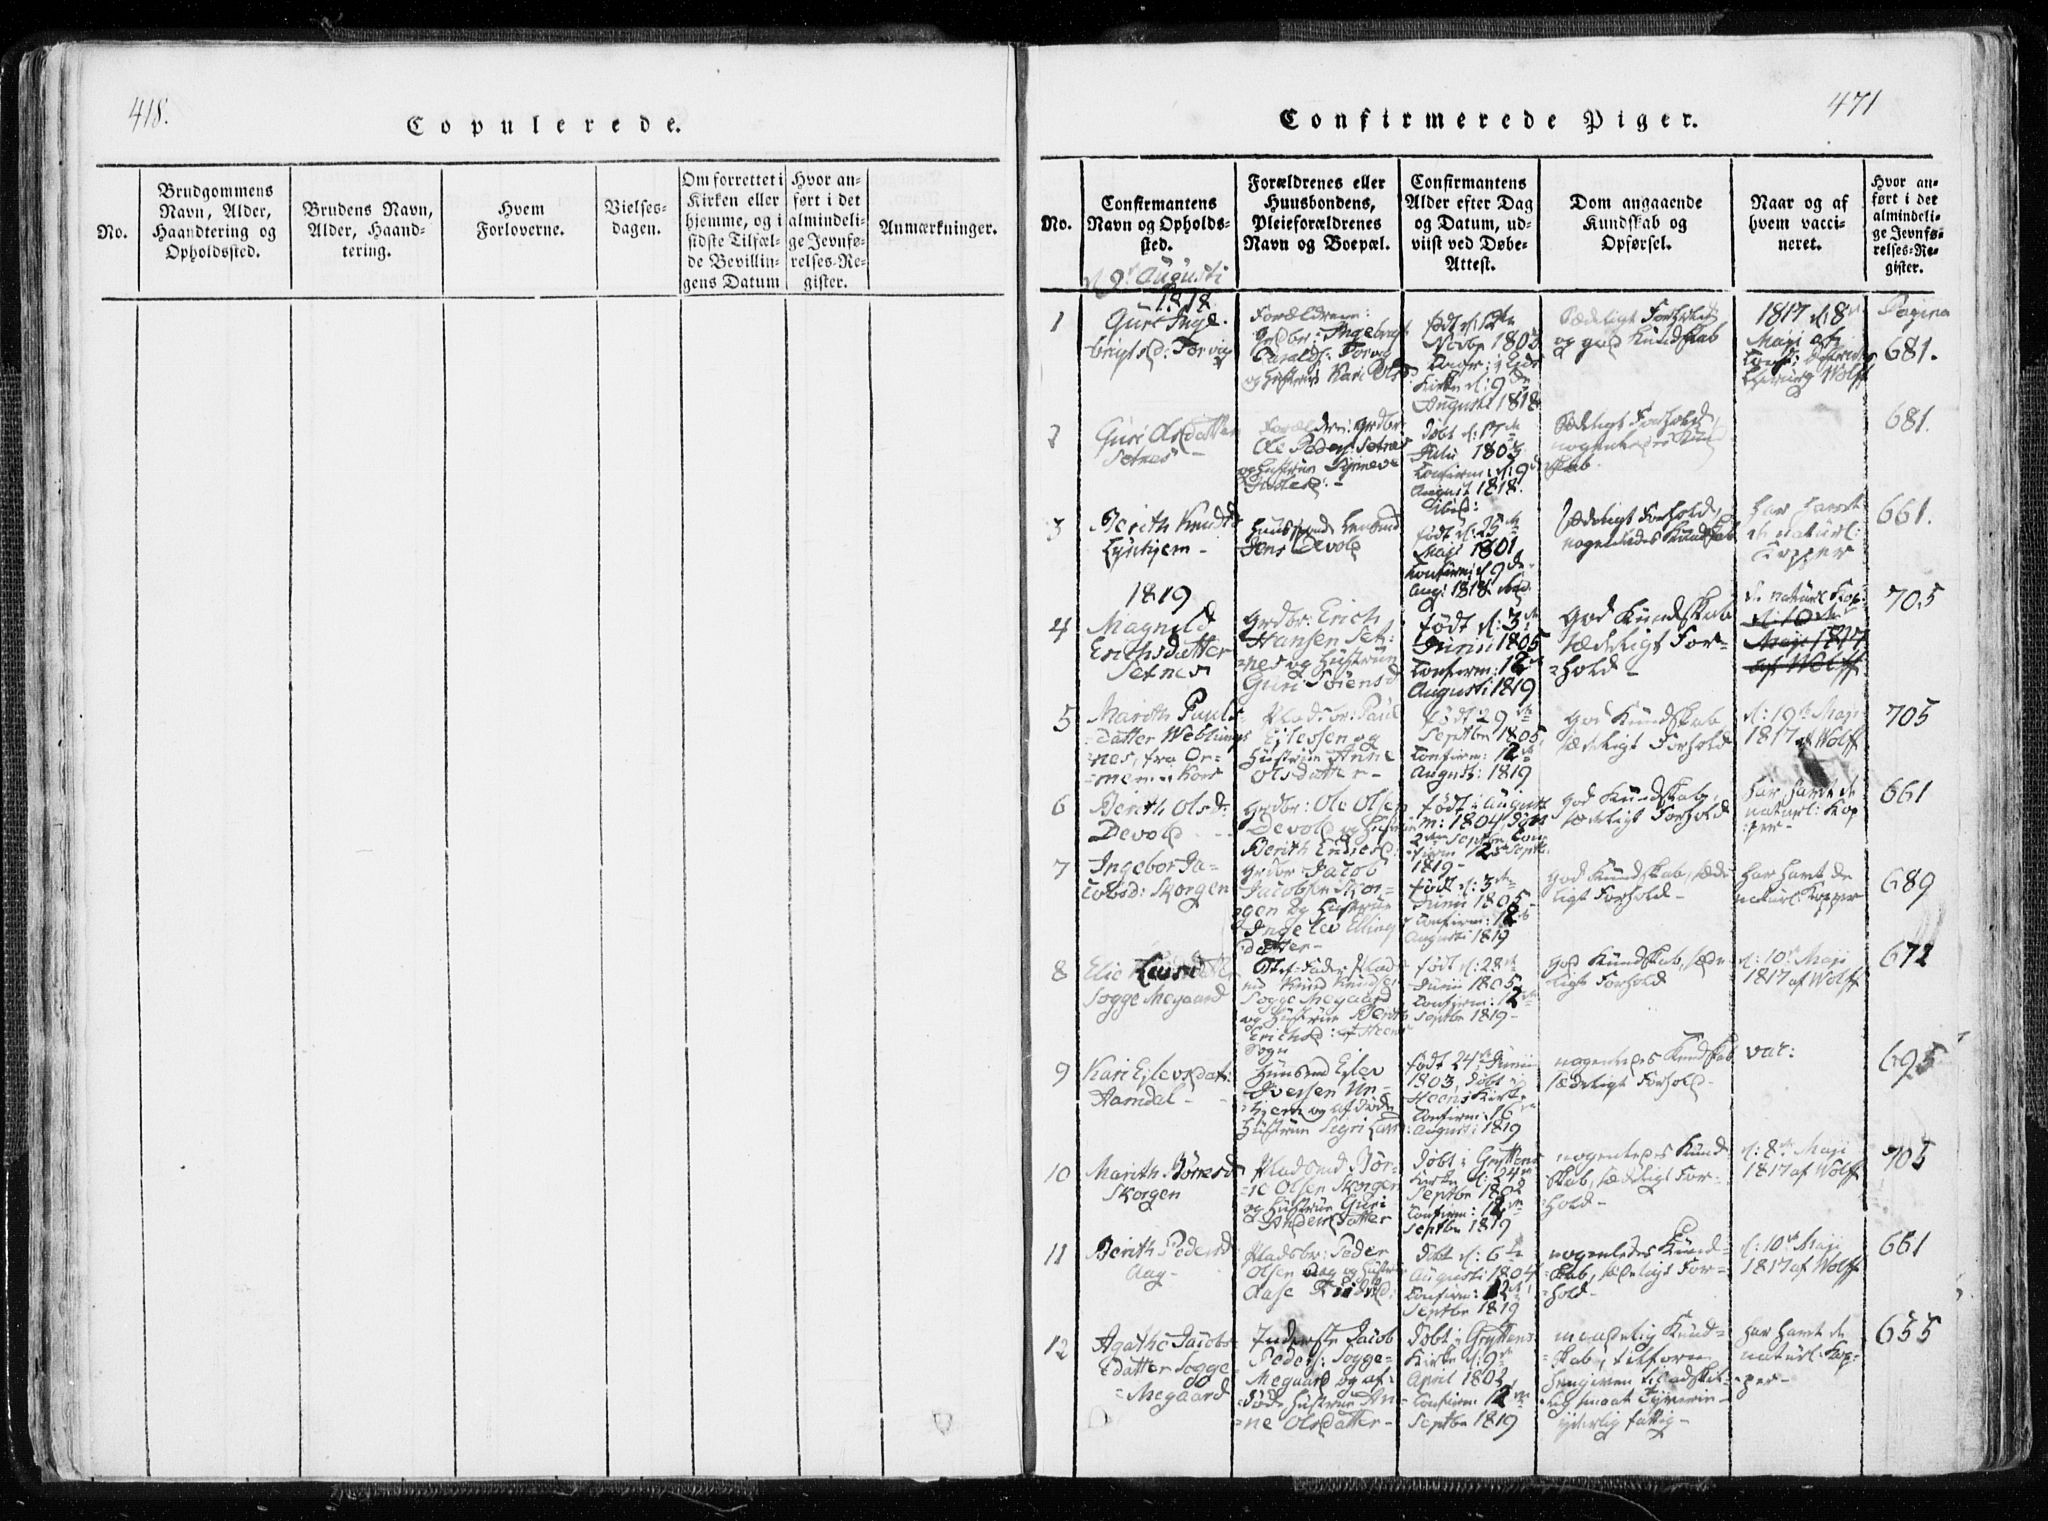 418.
Copulerede.
No.
Brudgommens
Navn, Alder,
Haandtering og
Opholdssted.
Brudens Navn,
Alder, Haand-
tering.
Hvem
Forloverne.
Vielses-
dagen.
Om forrettet i
Kirken eller
hjemme, og i
sidste Tilfæl-
de Bevillin-
gens Datum
Hvor an-
ført i det
almindeli-
ge Jevnfø-
relses-Re-
gister.
Anmærkninger.
471
Confirmerede Piger.
No.
Confirmantens
Navn og Opholds-
sted.
Forældrenes eller
Huusbondens,
Pleieforældrenes
Navn og Boepæl.
Confirmantens
Alder efter Dag
og Datum, ud-
viist ved Døbe-
Attest.
Dom angaaende
Kundskab og
Opførsel.
Naar og af
hvem vacci-
neret.
Hvor an-
ført i det
almindeli-
ge Jevnfø-
relses-Re-
gister.
d. 9de Augusti
1818
1
Guri Inge-
brigtsd: Torvig
Forældrene:
Grdbr: Ingebrigt
og Hustrue Kari Olsd
født d: 12te
Novbr 1803
Kirke d: 9de
Augusti 1818
Sædeligt Forhold
og god Kundskab
1817 d. 8de
Maji af
Wolff
Pagina
681.
2
Guri Olsdatter
Setnes
Forældre: Grdbr
Ole Peders: Setnes
og Hustrue
døbt d: 17de
Julii 1803
Confirm: d: 9de
August 1818.
Sædeligt Forhold,
nogenledes Kund
skab.
681.
3
Berith Knudsd
Lyhjem
Jens Devold
født d: 25de
Maji 1801
Confirm: d 9de
Aug: 1818
Sædeligt Forhold,
nogenledes Kundskab
har havt
de naturl:
Kopper
661.
1819
4
Magnild
Erichsdatter
Setnes
Grdbr: Erich
Hansen Set-
nes og Hustrue
Guri Sørensd
født d: 3de
Junii 1805
Confirm: 12te
Augusti 1819
God Kundskab
sædeligt For-
hold
de naturl Kop:
d: 10de
Maji 1817
af Wolff
705
5
Marith Pauls-
datter Weblungs-
nes, fra Or-
mem
Pladsbr: Paul
og
Hustrue Anne
Olsdatter
født 29de
Septbr 1805
Confirm: 12te
August: 1819
God Kundskab
sædeligt Forhold
d: 19de Maji
1817 af Wolff
705
6
Berith Olsd:
Devold
Grdbr: Ole Olsen
Devold og Hustrue
Berith
født i August
m: 1804
1819
God Kundskab,
sædeligt Forhold
har havt de
naturl: Kop
per
661
7
Ingebor Ja-
cobsd: Skorgen
Grdbr Jacob
Jacobsen Skor-
gen og Hustrue
Elling
datter
født d: 3de
Junii 1805
Confirm: 12te
Augusti 1819
God Kundskab, sæde
ligt Forhold
har havt de
naturl: Kopper
689
8
Elie
Sogge Megaard
Stef-Fader Plads
Knud Knudsen
Sogge Megaard
og Hustrue Berith
Erichsd:
Sogn
født d: 28de
Junii 1805
Confirm: 12te
Septbr 1819
God Kundskab, sæde
ligt Forhold
d: 10de Maji
1817 af Wolff
672
9
Kari Ejlevsdat:
Aamdal
Huusmd Ejlev
Iversen Un-
hjem og afdøde
Hustrue Sigri
født 24de Junii
1803, døbt i
Hoens Kirke
Confirm: 16de
Augusti 1819
nogenledes Kundskab
sædeligt Forhold
vac:
695
10
Marith Børresd
Skorgen
Pladsmd Bør-
re Olsen Skorgen
og Hustrue Guri
Andersdatter
døbt i Gryttens
Kirke d: 24de
Septbr 1802
Confirm: 12te
Septbr 1819
nogenledes Kund
skab, sædeligt For-
hold
d: 8de Maji
1817 af Wolff
705
11
Berith Pedersd
Aag
Pladsbr: Peder
Olsen Aag og Hustrue
Aase
døbt d: 6te
Augusti 1804
Confirm: 12te
Septbr 1819
nogenledes Kund-
skab, sædeligt For-
hold
d: 10de Maji
1817 af Wolff
661
12
Agathe Jacobs-
datter Sogge
Megaard
Inderste Jacob
Peders: Sogge-
Megaard og af-
døde Hustrue An-
ne Olsdatter
døbt i Gryttens
Kirke d: 9de
April 1802
Confirm 12te
Septbr 1819
maadelig Kund-
skab, tilforn
hengiven til adskil-
lig smaat Tyverie
yderlig fattig
har havt de
naturl: Kop-
per
655